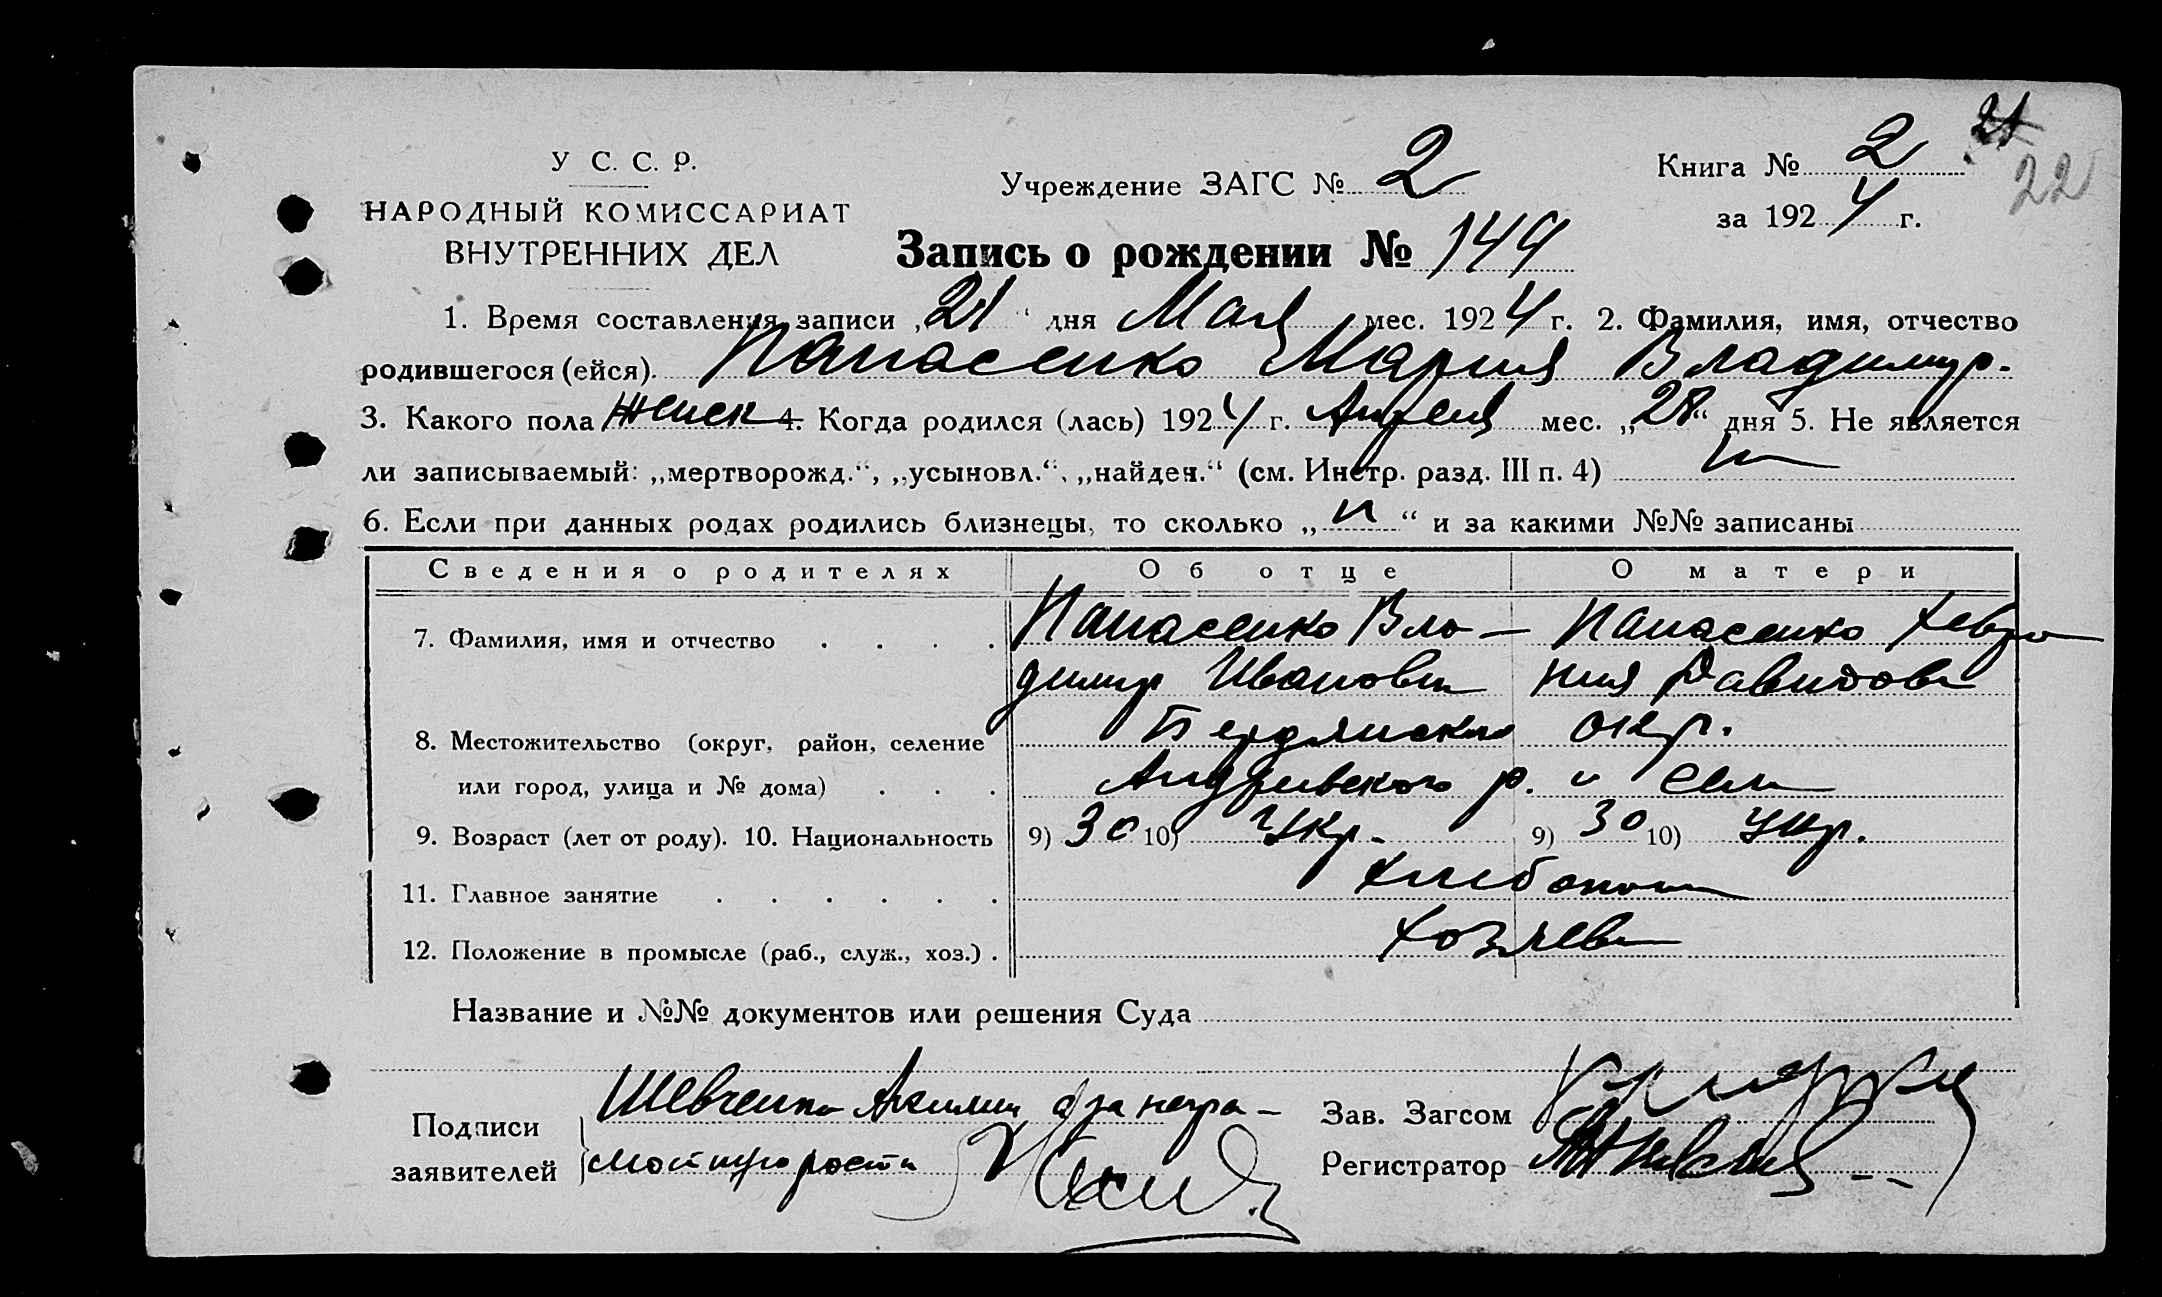 У С. С. Р.
НАРОДНЫЙ КОМИССАРИАТ
ВНУТРЕННИХ ДЕЛ
Учреждение ЗАГС № 2
Книга № 2
21
22
за 1924 г.
Запись о рождении № 149
1. Время составления записи „21“ дня Мая мес. 1924 г. 2. Фамилия, имя, отчество
родившегося (ейся). Панасенко Мария Владимир.
3. Какого пола женск 4. Когда родился (лась) 1924 г. Апреля мес. „28“ дня 5. Не является
ли записываемый: „мертворожд.“, „усыновл.“, „найден.“ (см. Инстр. разд. III п. 4)
6. Если при данных родах родились близнецы, то сколько „н“ и за какими №№ записаны
Сведения о родителях Об отце О матери
7. Фамилия, имя и отчество Панасенко Вла- Панасенко Хевро
димир Иванови ния Давидовн
8. Местожительство (округ, район, селение Бердянского окр.
или город, улица и № дома) Андреевского р. и села
9. Возраст (лет от роду). 10. Национальность 9) 30 10) Укр. 9) 30 10) Укр.
11. Главное занятие Хлебопаш
12. Положение в промысле (раб., служ., хоз.) Хозяева
Название и №№ документов или решения Суда
Подписи Шевченко а за негра-
заявителей мотн
Зав. Загсом
Регистратор